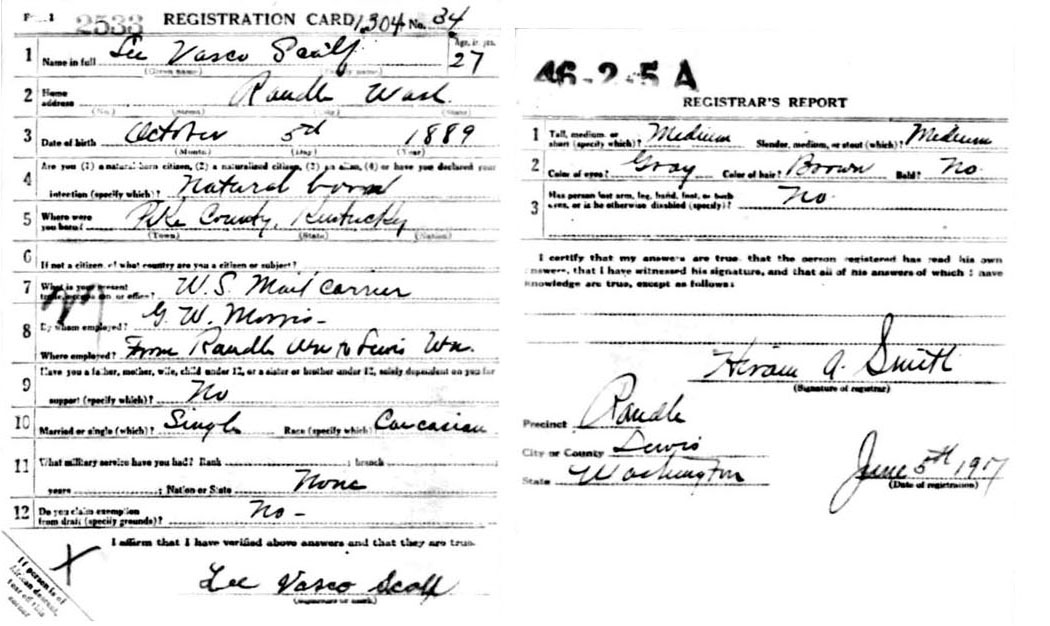 2533 REGISTRATION CARD 1304 No. 34
1 Name in full Lee Vasco Scalf Age, in yrs. 27
(Given name) (Family name)
2 Home address Randle Wash.
(No.) (Street) (City) (State)
3 Date of birth October 5th 1889
(Month) (Day) (Year)
4 Are you (1) a natural-born citizen, (2) a naturalized citizen, (3) an alien, (4) or have you declared your
intention (specify which)? Natural born
5 Where were you born? Pike County, Kentucky
(Town) (State) (Nation)
6 If not a citizen, of what country are you a citizen or subject?
7 What is your present trade, occupation, or office? U.S. Mail Carrier
8 By whom employed? G. W. Morris-
Where employed? From Randle Wn to Lewis Wn.
9 Have you a father, mother, wife, child under 12, or a sister or brother under 12, solely dependent on you for
support (specify which)? No
10 Married or single (which)? Single Race (specify which) Caucasian
11 What military service have you had? Rank ; branch
years ; Nation or State None
12 Do you claim exemption from draft (specify grounds)? No-
I affirm that I have verified above answers and that they are true.
Lee Vasco Scalf
(Signature or mark)
If person is of African descent, tear off this corner
46-2-5 A
REGISTRAR'S REPORT
1 Tall, medium, or short (specify which)? Medium Slender, medium, or stout (which)? Medium
2 Color of eyes? Gray Color of hair? Brown Bald? No.
3 Has person lost arm, leg, hand, foot, or both eyes, or is he otherwise disabled (specify)? No.
I certify that my answers are true, that the person registered has read his own
answers, that I have witnessed his signature, and that all of his answers of which I have
knowledge are true, except as follows:
Hiram A. Smith
(Signature of registrar)
Precinct Randle
City or County Lewis
State Washington
June 5th 1917
(Date of registration)